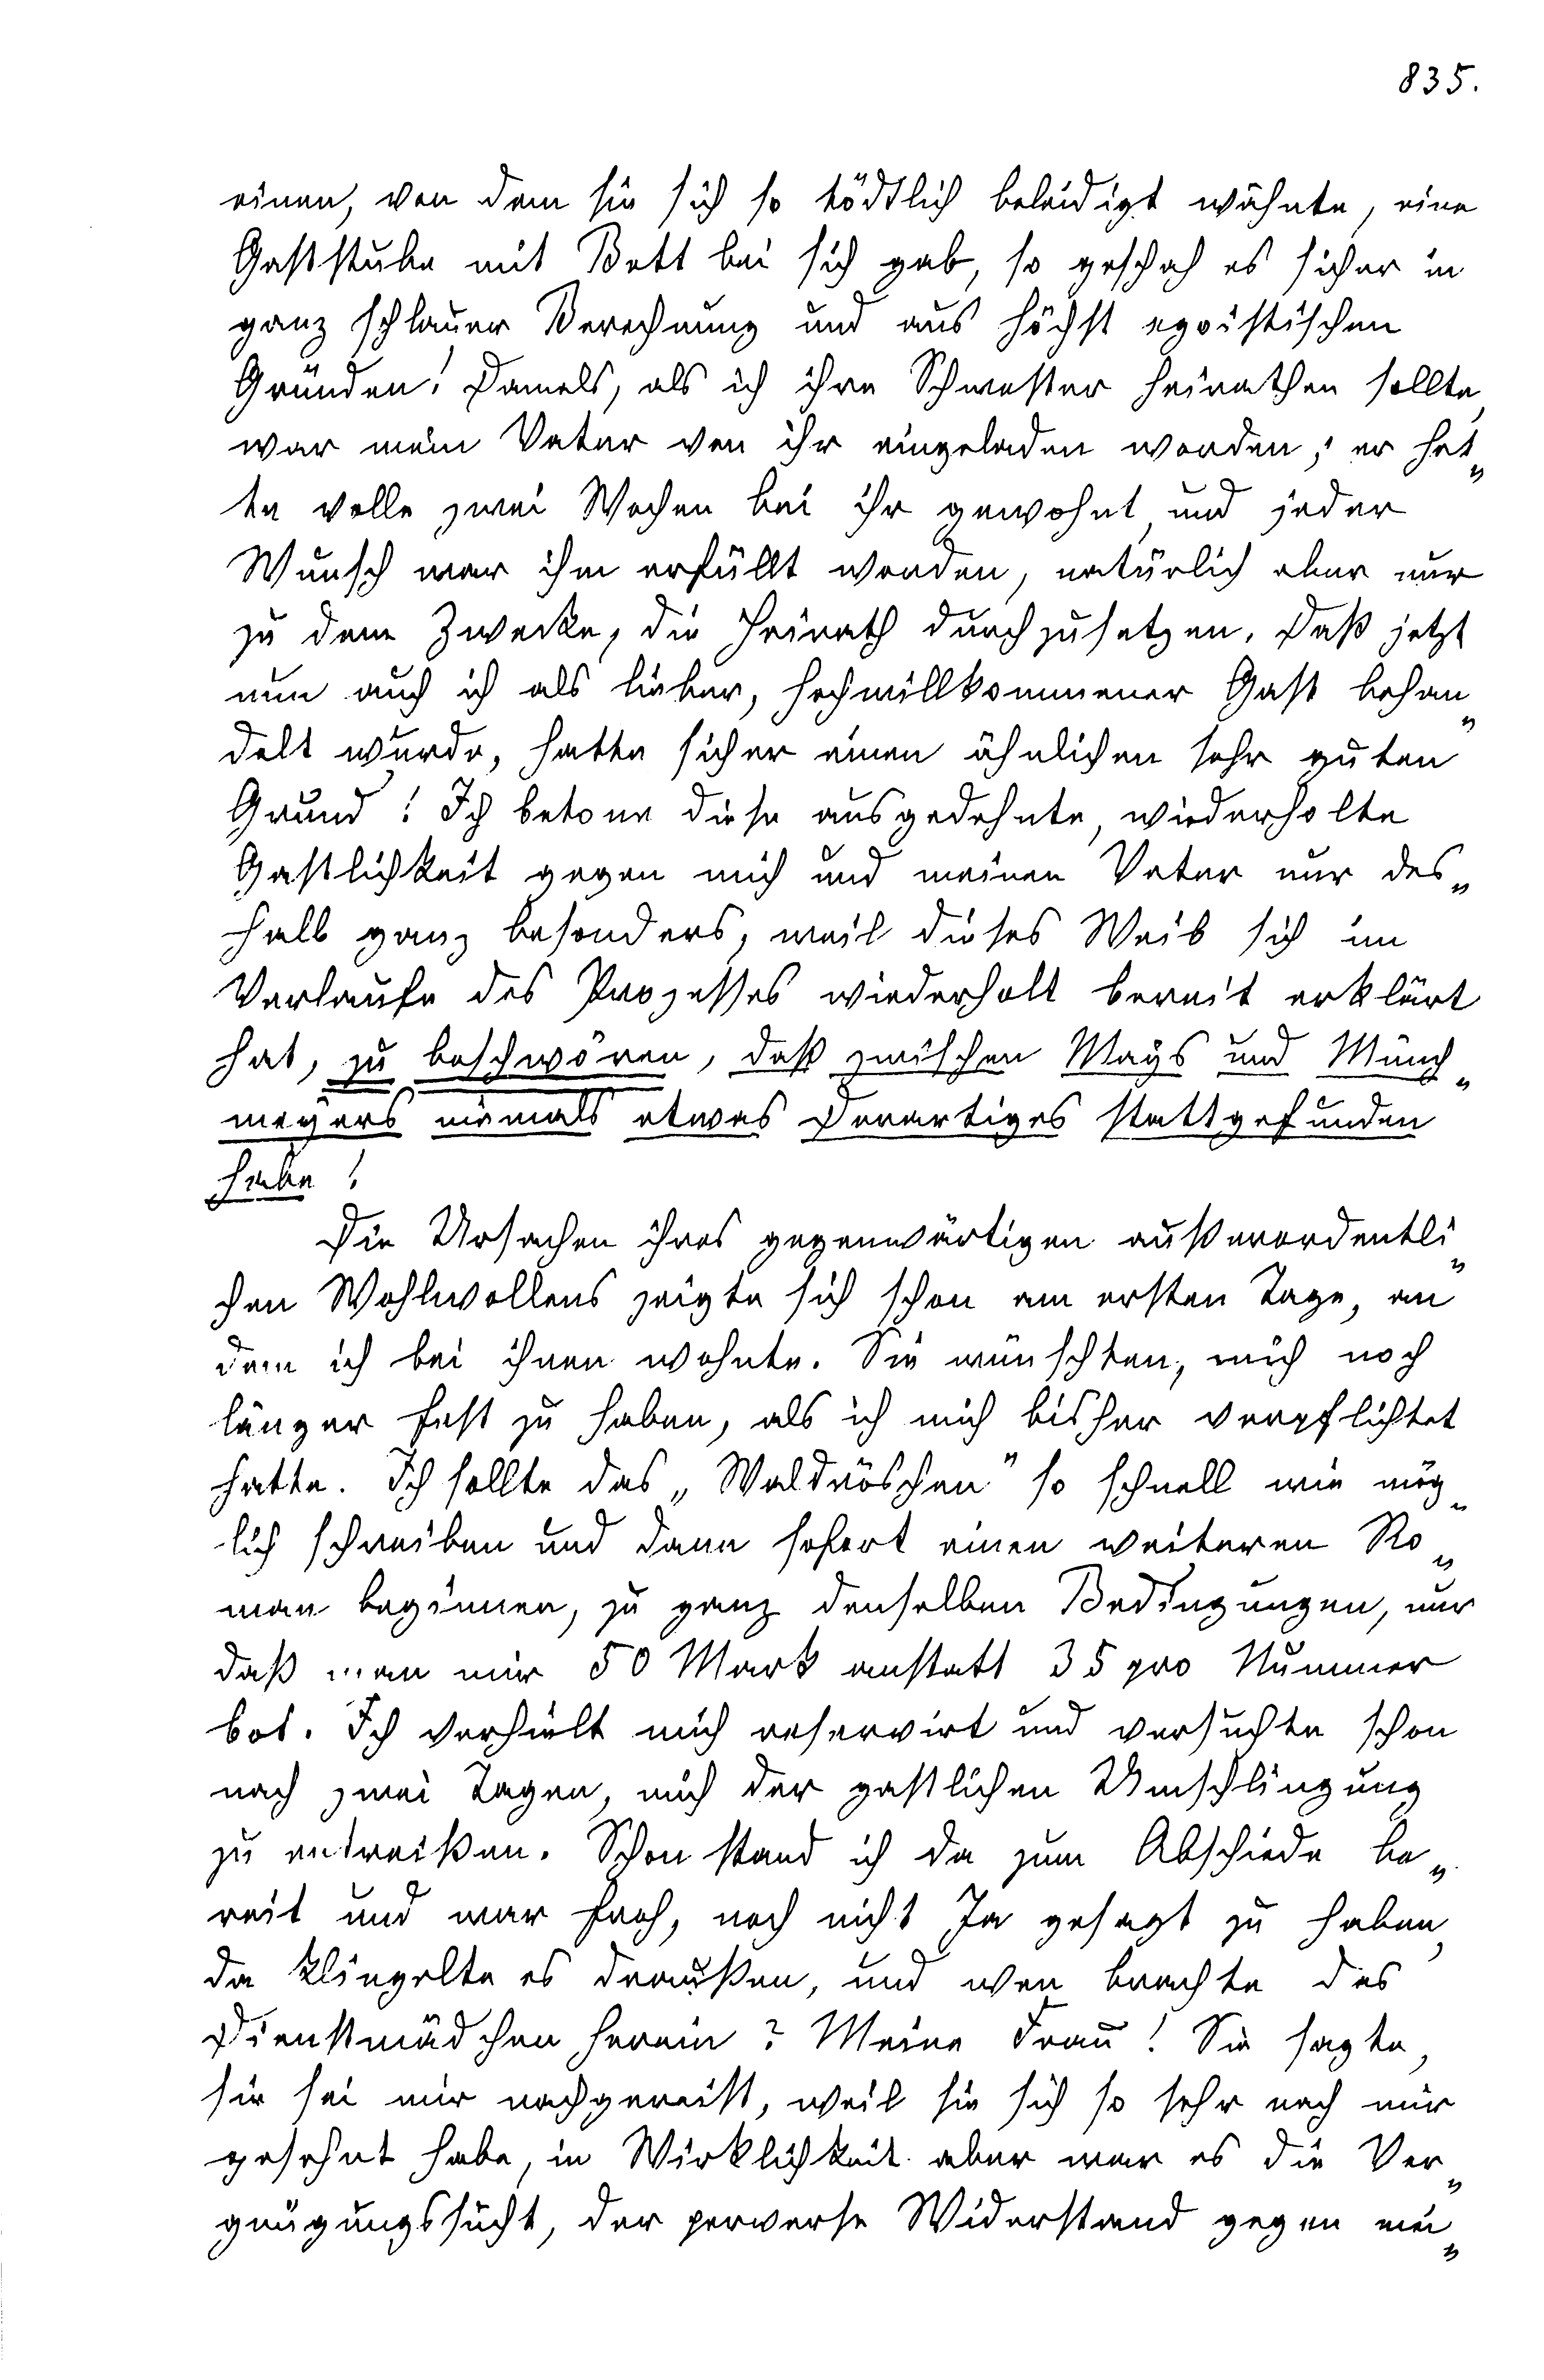 835.
einen, von dem sie sich so tödtlich beleidigt wähnte, eine
Gaststube mit Bett bei sich gab, so geschah es sicher in
ganz schlauer Berechnung und aus höchst egoistischen
Gründen! Damals, als ich ihre Schwester heirathen sollte,
war mein Vater von ihr eingeladen worden; er hat„
te volle zwei Wochen bei ihr gewohnt, und jeder
Wunsch war ihm erfüllt worden, natürlich aber nur
zu dem Zwecke, die Heirath durchzusetzen. Daß jetzt
nun auch ich als lieber, hochwillkommener Gast behan„
delt wurde, hatte sicher einen ähnlichen sehr guten
Grund! Ich betone diese ausgedehnte, wiederholte
Gastlichkeit gegen mich und meinen Vater nur des„
halb ganz besonders, weil dieses Weib sich im
Verlaufe des Prozesses wiederholt bereit erklärt
hat, zu beschwören, daß zwischen Mays und Münch„
meyers niemals etwas Derartiges stattgefunden
habe!
Die Ursachen ihres gegenwärtigen außerordentli„
chen Wohlwollens zeigte sich schon am ersten Tage, an
dem ich bei ihnen wohnte. Sie wünschten, mich noch
länger fest zu haben, als ich mich bisher verpflichtet
hatte. Ich sollte das „Waldröschen" so schnell wie mög„
lich schreiben und dann sofort einen weiteren Ro„
man beginnen, zu ganz denselben Bedingungen, nur
daß man mir 50 Mark anstatt 35 pro Nummer
bot. Ich verhielt mich reservirt und versuchte schon
nach zwei Tagen, mich der gastlichen Umschlingung
zu entreißen. Schon stand ich da zum Abschiede be„
reit und war froh, noch nicht Ja gesagt zu haben,
da klingelte es draußen, und wen brachte das
Dienstmädchen herein? Meine Frau! Sie sagte,
sie sei mir nachgereist, weil sie sich so sehr nach mir
gesehnt habe, in Wirklichkeit aber war es die Ver„
gnügungssucht, der perverse Widerstand gegen mei„